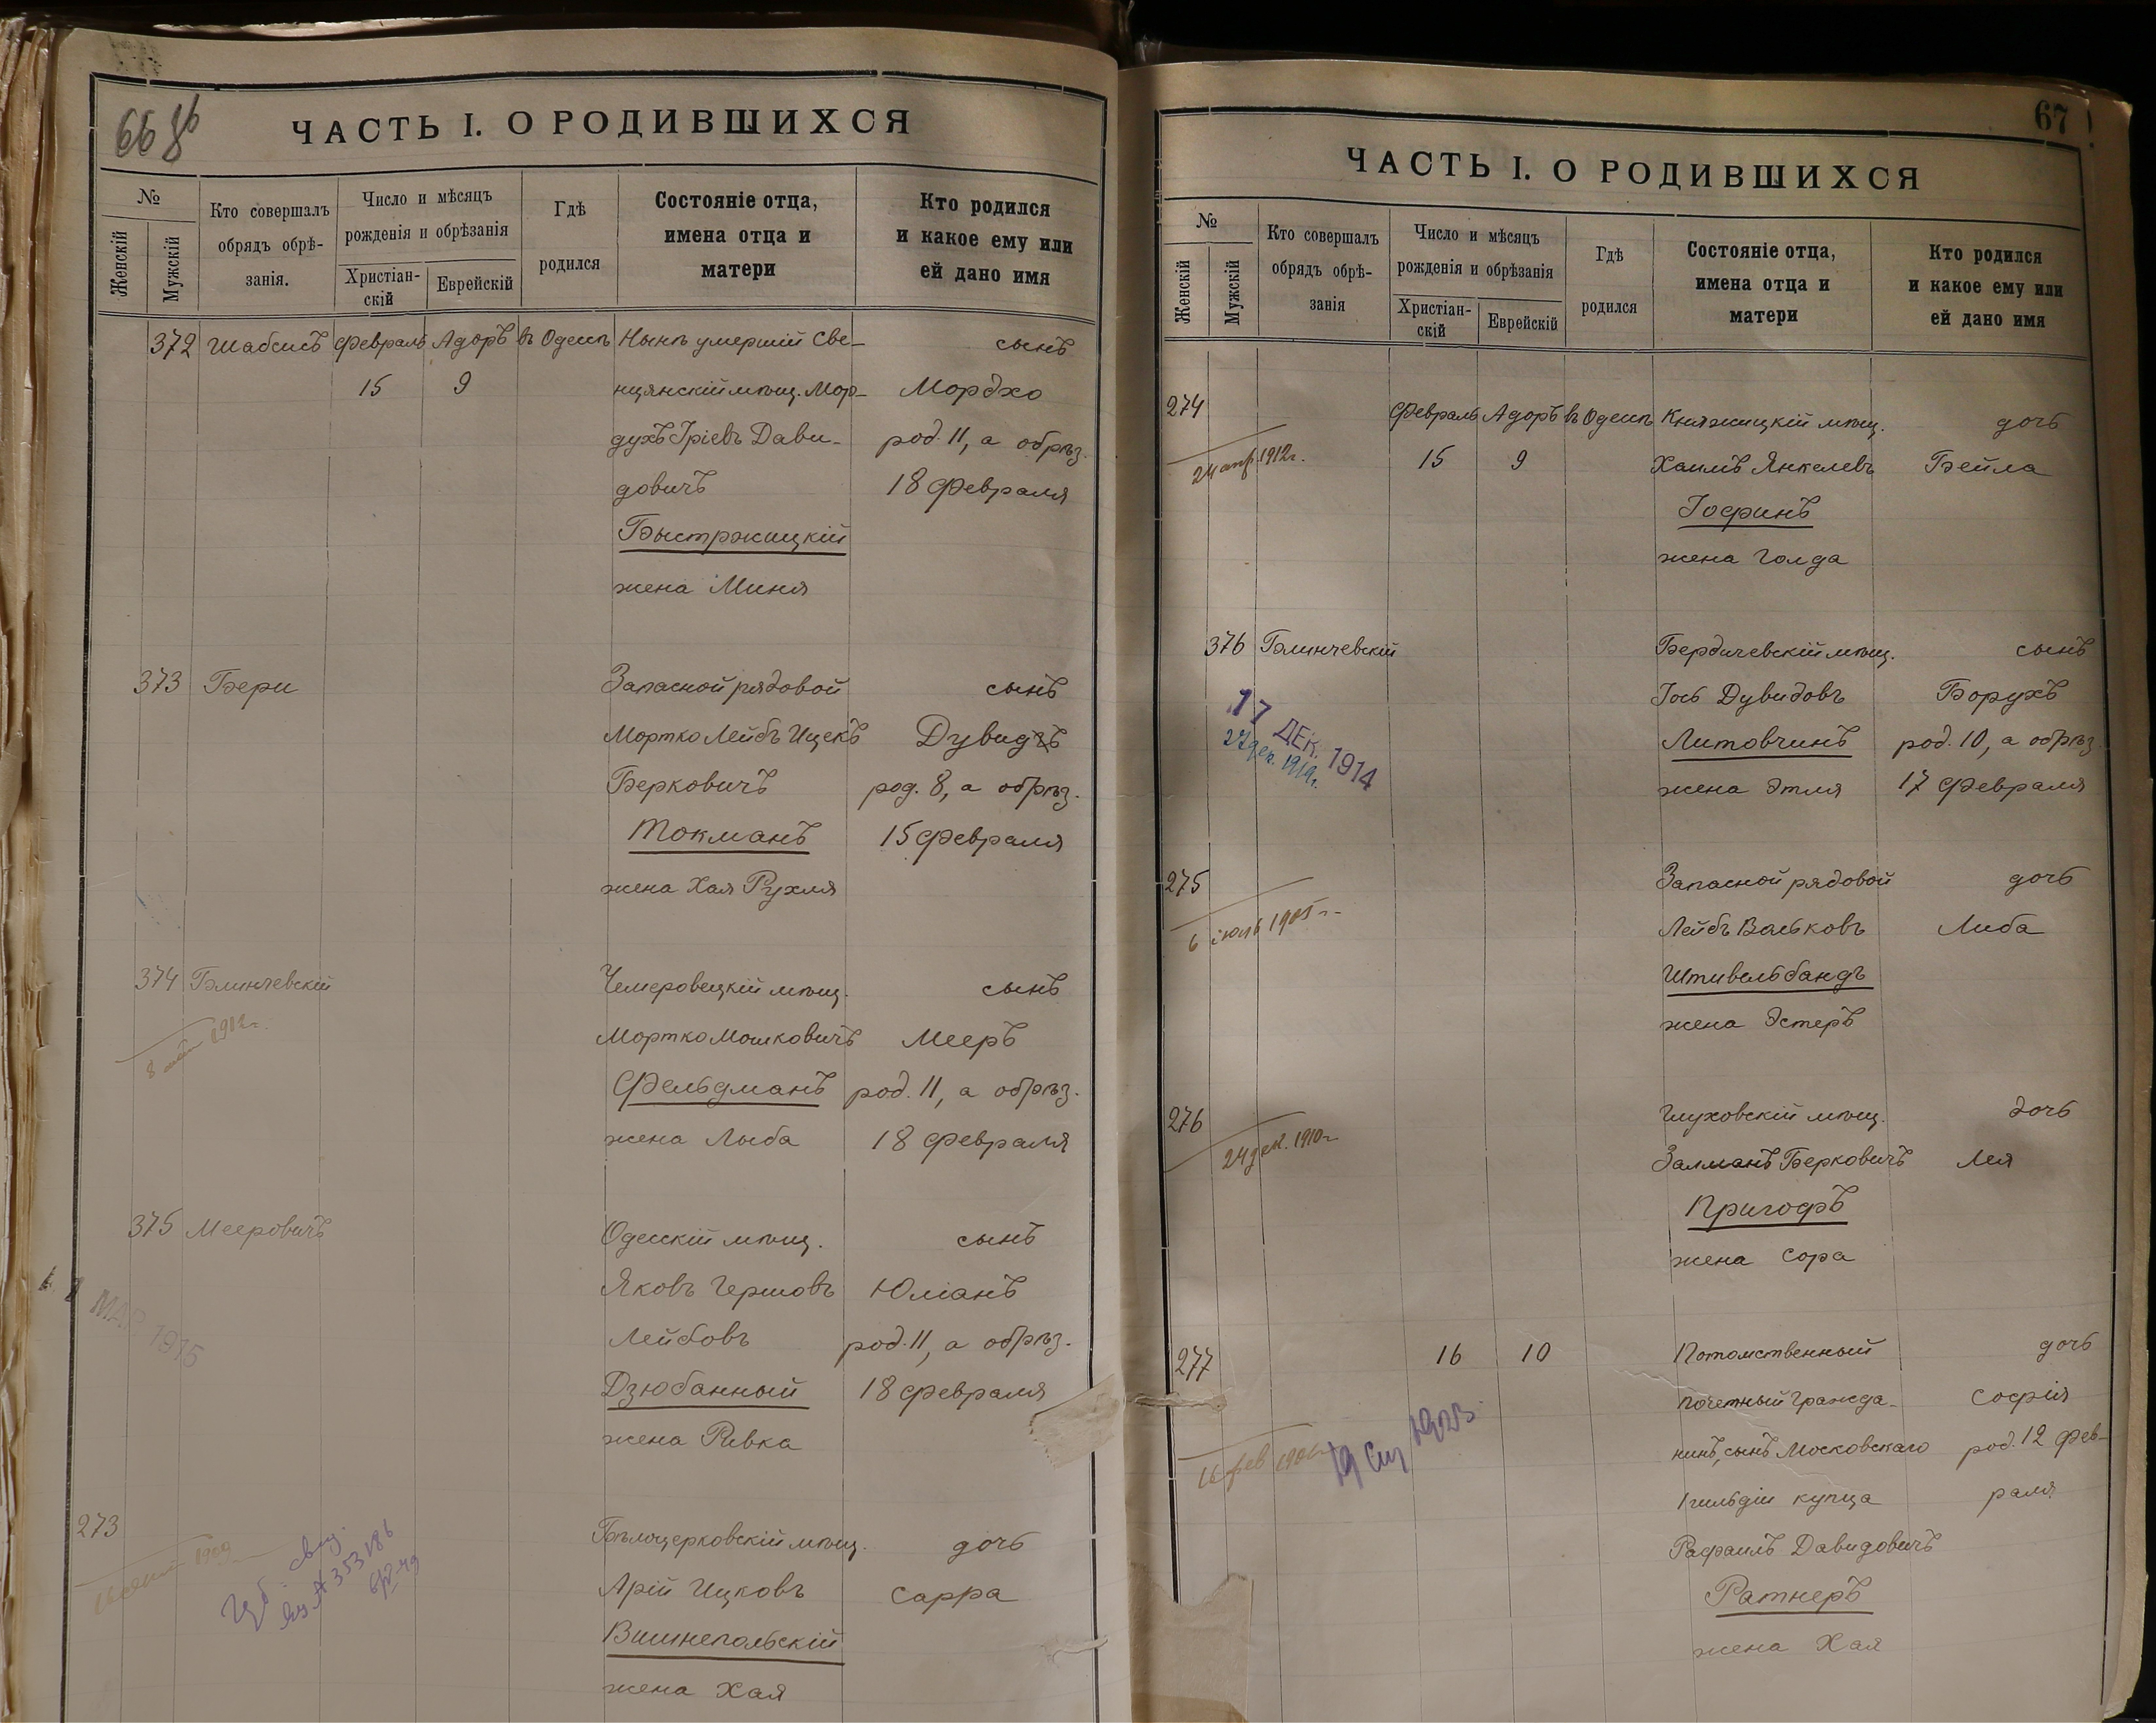 66 об
ЧАСТЬ I. О РОДИВШИХСЯ
№
Женскій
Мужскій
Кто совершалъ обрядъ обрѣ-занія.
Число и мѣсяцъ рожденія и обрѣзанія
Христіан-скій
Еврейскій
Гдѣ родился
Состояніе отца, имена отца и матери
Кто родился и какое ему или ей дано имя
372 Шабсисъ Февраль Адоръ въ Одессѣ Нынѣ умершій Све- сынъ
15 9 нцянскій мѣщ. Мор- Мордхо
духъ Іріевъ Дави- род. 11, а обрѣз.
довичъ 18 Февраля
Быстржицкій
жена Миня
373 Бери Запасной рядовой сынъ
Мортко Лейбъ Ицекъ Дувидъ
Берковичъ род. 8, а обрѣз.
Токманъ 15 Февраля
жена Хая Рухля
374 Блинчевскій Чемеровецкій мѣщ. сынъ
Мортко Мошковичъ Мееръ
8 май 1912г.
Фельдманъ род. 11, а обрѣз.
жена Лыба 18 Февраля
375 Мееровичъ Одесскій мѣщ. сынъ
Яковъ Гершовъ Юліанъ
МАР. 1915
Лейбовъ род. 11, а обрѣз.
Дзюбанный 18 Февраля
жена Ривка
273 Бѣлоцерковскій мѣщ. дочь
1909
Арій Ицковъ Сарра
Вишнепольскій
жена Хая
67
ЧАСТЬ I. О РОДИВШИХСЯ
№
Женскій
Мужскій
Кто совершалъ обрядъ обрѣ-занія
Число и мѣсяцъ рожденія и обрѣзанія
Христіан-скій
Еврейскій
Гдѣ родился
Состояніе отца, имена отца и матери
Кто родился и какое ему или ей дано имя
274 Февраль Адоръ въ Одессѣ Княжицкій мѣщ. дочь
24 апр 1912г. 15 9 Хаимъ Янкелевъ Бейла
Іосфинъ
жена Голда
376 Блинчевскій Бердичевскій мѣщ. сынъ
17 ДЕК. 1914
Іось Дувидовъ Борухъ
27 дек. 1914г.
Литовчинъ род. 10, а обрѣз.
жена Этля 17 Февраля
275 Запасной рядовой дочь
6 іюль 1905 г. Лейбъ Вольковъ Либа
Штивельбандъ
жена Эстеръ
276 Глуховскій мѣщ. дочь
24 дек. 1910г. Залманъ Берковичъ Лея
Пригофъ
жена Сора
277 16 10 Потомственный дочь
почетный гражда- Софія
16 фев
нинъ, сынъ Московскаго род. 12 Фев-
I гильдіи купца раля
Рафаилъ Давидовичъ
Ратнеръ
жена Хая